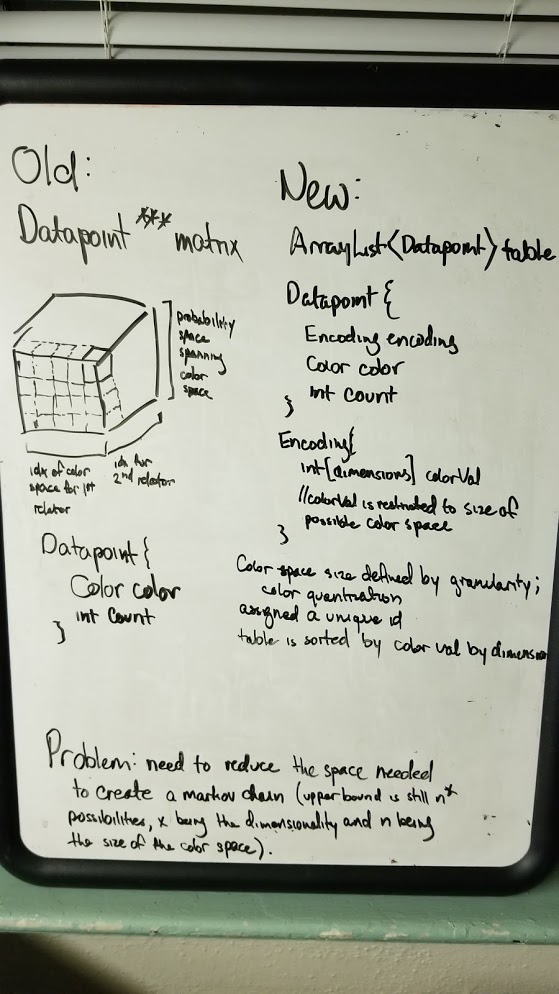 Old:
Datapoint *** matrix
probability
space
spanning
color
space
idx of color
space for 1st
relator
idx for
2nd relator
Datapoint {
Color color
int count
}
New:
ArrayList<Datapoint> table
Datapoint {
Encoding encoding
Color color
int count
}
Encoding{
int[dimensions] colorVal
//colorVal is restricted to size of
possible color space
}
Color space size defined by granularity;
color quantization
assigned a unique id
table is sorted by color val by dimension
Problem: need to reduce the space needed
to create a markov chain (upper bound is still n^x
possibilities, x being the dimensionality and n being
the size of the color space).